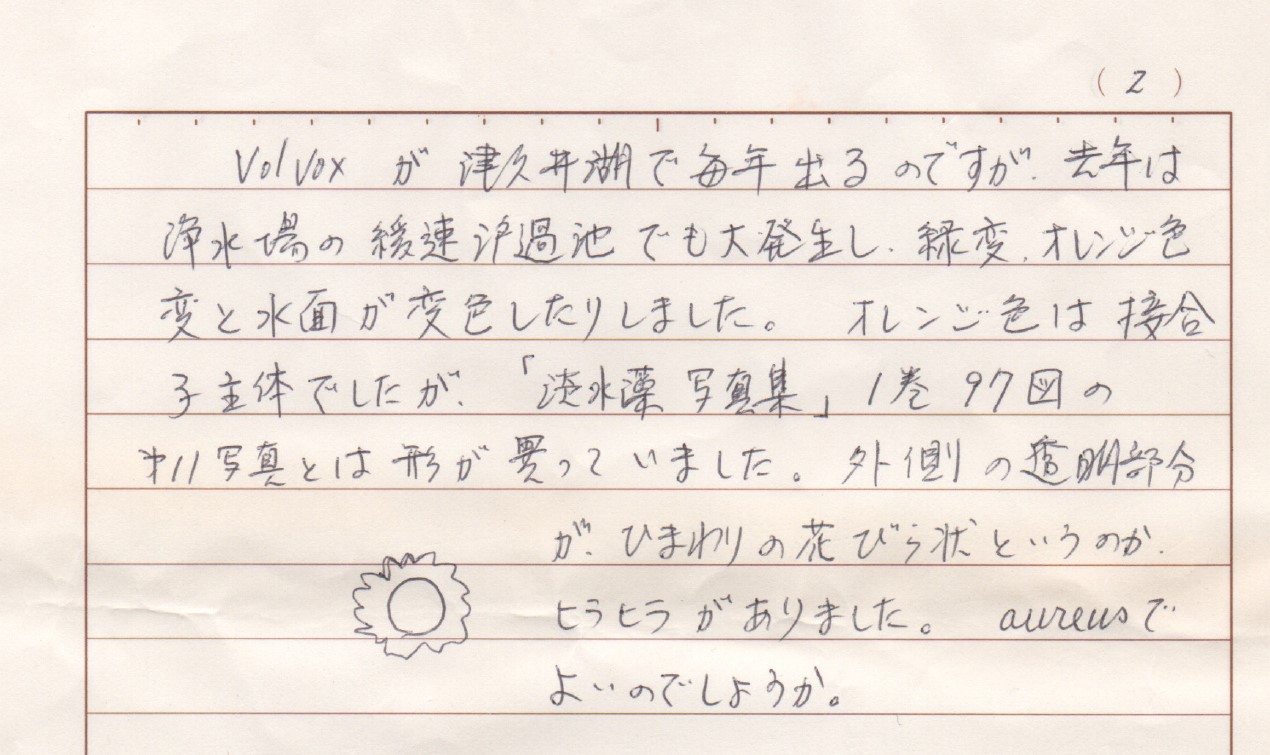 (2)
Volvox が 津久井湖で毎年出るのですが、去年は
浄水場の緩速沪過池でも大発生し、緑変、オレンジ色
変と水面が変色したりしました。 オレンジ色は接合
子主体でしたが、「淡水藻写真集」1巻97図の
オ11写真とは形が異っていました。外側の透明部分
が、ひまわりの花びら状というのか、
ヒラヒラがありました。 aureusで
よいのでしょうか。